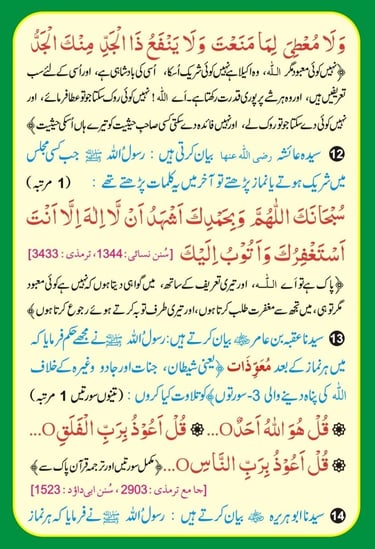 وَلَا مُعْطِیَ لِمَا مَنَعْتَ وَلَا یَنْفَعُ ذَا الْجَدِّ مِنْكَ الْجَدُّ
﴿نہیں کوئی معبود مگر اللہ، وہ اکیلا ہے نہیں کوئی شریک اُسکا، اُسی کی بادشاہی ہے، اور اُسی کے لئے سب
تعریفیں ہیں، اور وہ ہر شے پر پوری قدرت رکھتا ہے۔ اَے اللہ! نہیں کوئی روک سکتا جو تو عطا فرمائے، اور
نہیں کوئی دے سکتا جو تو روک لے، اور نہیں فائدہ دے سکتی کسی صاحبِ حیثیت کو تیرے ہاں اُسکی حیثیت﴾
12 سیدہ عائشہ رضی اللہ عنہا بیان کرتی ہیں: رسولُ اللہ ﷺ جب کسی مجلس
میں شریک ہوتے یا نماز پڑھتے تو آخر میں یہ کلمات پڑھتے تھے: (1 مرتبہ)
سُبْحَانَكَ اللّٰهُمَّ وَبِحَمْدِكَ اَشْهَدُ اَنْ لَّا اِلٰهَ اِلَّا اَنْتَ
اَسْتَغْفِرُكَ وَاَتُوْبُ اِلَیْكَ [سُنن نسائی: 1344، ترمذی: 3433]
﴿پاک ہے تو اَے اللہ، اور تیری تعریف کے ساتھ، میں گواہی دیتا ہوں کہ نہیں ہے کوئی معبود
مگر تو ہی، میں تجھ سے مغفرت طلب کرتا ہوں، اور تیری طرف توبہ کرتے ہوئے رجوع کرتا ہوں﴾
13 سیدنا عقبہ بن عامر بیان کرتے ہیں: رسولُ اللہ ﷺ نے مجھے حکم فرمایا کہ
میں ہر نماز کے بعد مُعَوِّذَات ﴿یعنی شیطان، جنات اور جادو وغیرہ کے خلاف
اللہ کی پناہ دینے والی 3-سورتوں﴾ کو تلاوت کیا کروں: (تینوں سورتیں 1 مرتبہ)
❁ قُلْ هُوَ اللهُ اَحَدٌO... ❁ قُلْ اَعُوْذُ بِرَبِّ الْفَلَقِO...
❁ قُلْ اَعُوْذُ بِرَبِّ النَّاسِO... ﴿مکمل سورتیں اور ترجمہ قرآنِ پاک سے﴾
[جامع ترمذی: 2903، سُنن ابی داؤد: 1523]
14 سیدنا ابو ہریرہ بیان کرتے ہیں: رسولُ اللہ ﷺ نے فرمایا کہ ہر نماز